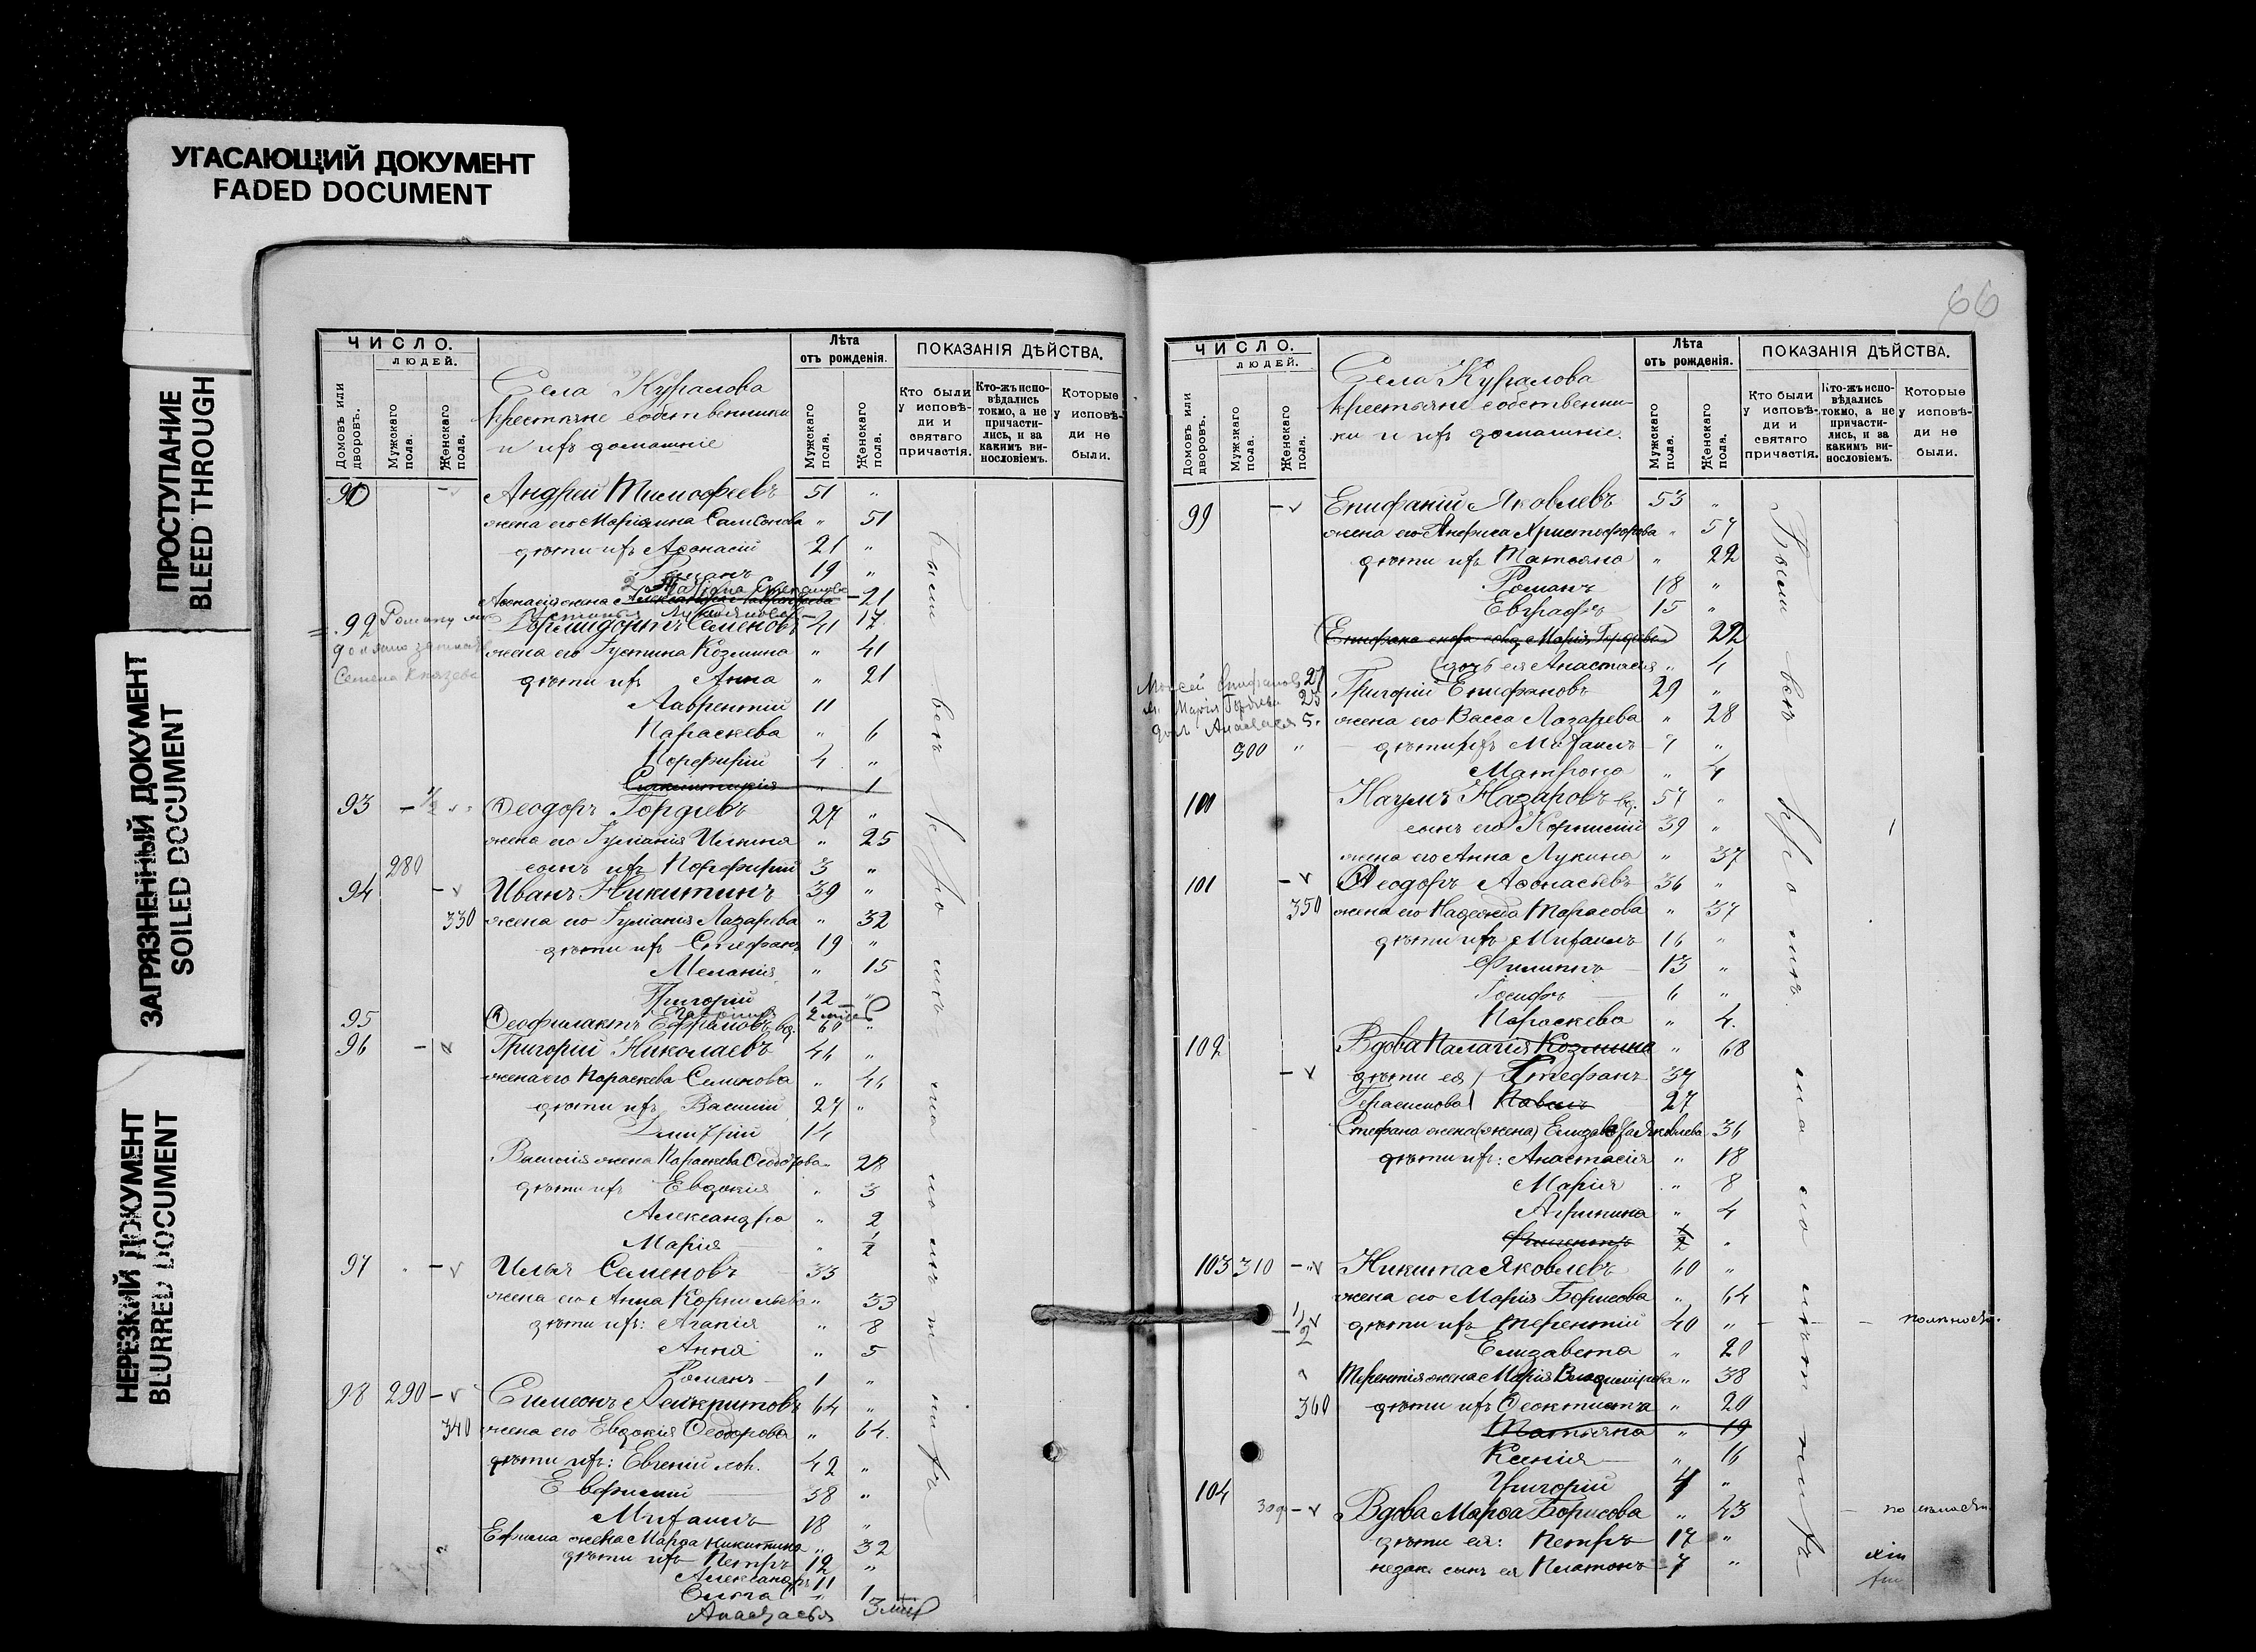 УГАСАЮЩИЙ ДОКУМЕНТ
FADED DOCUMENT
ПРОСТУПАНИЕ
BLEED THROUGH
ЗАГРЯЗНЕННЫЙ ДОКУМЕНТ
SOILED DOCUMENT
НЕРЕЗКИЙ ДОКУМЕНТ
BLURRED DOCUMENT
ЧИСЛО.
ЛЮДЕЙ.
Домовъ или дворовъ.
Мужскаго пола.
Женскаго пола.
Села Куралова
крестьяне собственники
и ихъ домашніе
Лѣта
отъ рожденія.
Мужскаго пола.
Женскаго пола.
ПОКАЗАНІЯ ДѢЙСТВА.
Кто были у исповѣди и святаго причастія.
Кто-жъ исповѣдались токмо, а не причастились, и за какимъ винословіемъ.
Которые у исповѣди не были.
90 Андрей Тимофеевъ 51 "
жена его Маріанна Самсонова " 51
дѣти ихъ Аѳонасій 21 "
Романъ 19 "
Аѳонасія жена 21
92 Дормидонтъ Семеновъ 41 17
жена его Густина Козмина " 41
дѣти ихъ Анна " 21
Лаврентій 11
Параскева " 6
Порфирій 4 "
Синклитикія " 1
93 1/2 Ѳеодоръ Гордѣевъ 27 "
жена его Іуліанія Ильина " 25
280 сынъ ихъ Порфирій 3 "
94 Иванъ Никитинъ 39 "
330 жена его Іуліанія Лазарева " 32
дѣти ихъ Стефанъ 19 "
Меланія " 15
Григорій 12 "
95 Ѳеофилактъ Ефремовъ вд. 60 "
96 Григорій Николаевъ 46 "
жена его Параскева Семенова " 46
дѣти ихъ Василій 27 "
Димитрій 14
Василія жена Параскева Ѳеодорова " 28
дѣти ихъ Евдокія " 3
Александра " 2
Марія " 1/2
97 Илья Семеновъ 33
жена его Анна Корнильева " 33
дѣти ихъ: Агапія " 8
Анна " 5
Романъ 1 "
98 290 Симеонъ Асинкритовъ 64 "
340 жена его Евдокія Ѳеодорова " 64
дѣти ихъ: Евгеній 42 "
Ефимій 38 "
Михаилъ 18 "
Ефима жена Марѳа Никитина " 32
дѣти ихъ Петръ 12 "
Александръ 11
Ольга " 1
Анастасья
Были всѣ кромѣ
66
ЧИСЛО.
ЛЮДЕЙ.
Домовъ или дворовъ.
Мужскаго пола.
Женскаго пола.
Села Куралова
крестьяне собственни-
ки и ихъ домашніе.
Лѣта
отъ рожденія.
Мужскаго пола.
Женскаго пола.
ПОКАЗАНІЯ ДѢЙСТВА.
Кто были у исповѣди и святаго причастія.
Кто-жъ исповѣдались токмо, а не причастились, и за какимъ винословіемъ.
Которые у исповѣди не были.
99 Епифаній Яковлевъ 53 "
жена его Анфиса Христофорова " 57
дѣти ихъ Татьяна " 22
Романъ 18 "
Евграфъ 15 "
Марія Гордѣева 22
дочь ея Анастасія " 4
Моисей Епифановъ 27
ж. Марія Гордѣева 25
дочь Анастасія 5.
Григорій Епифановъ 29 "
жена его Васса Лазарева " 28
300 " дѣти ихъ Михаилъ 7 "
Матрона " 4
100 Наумъ Назаровъ вд. 57 "
сынъ его Корнилій 39 "
жена его Анна Лукина " 37
101 Ѳеодоръ Аѳонасьевъ 36 "
350 жена его Надежда Тарасова " 37
дѣти ихъ Михаилъ 16 "
Филиппъ 13 "
Іосифъ 6 "
Параскева " 4.
102 Вдова Палагія Козмина " 68
дѣти ея Стефанъ 37
Герасимова Павелъ 27
Стефана жена (жена) Елизавета Яковлева 36
дѣти ихъ: Анастасія " 18
Марія " 8
Агрипина " 4
1/2 "
103 310 Никита Яковлевъ 60 "
жена его Марія Борисова " 64
1/2 дѣти ихъ Терентій 40 "
Елизавета " 20
Терентія жена Марія Владимірова " 38
360 дѣти ихъ Ѳеоктиста " 20
Татьяна " 19
Ксенія " 16
Григорій 4 "
104 309 Вдова Марѳа Борисова " 43
дѣти ея: Петръ 17 "
незак. сынъ ея Платонъ 7 "
Были всѣ кромѣ